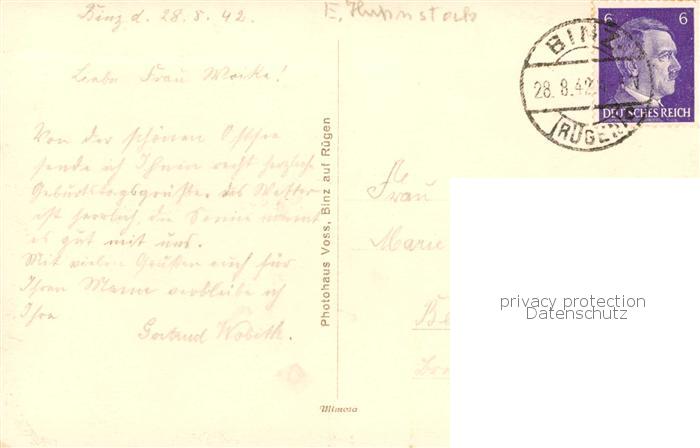 Binz d. 28.8.42.
Liebe Frau Woike!
Von der schönen Ostsee
sende ich Ihnen recht herzliche
Geburtstagsgrüße. Das Wetter
ist herrlich, die Sonne meint
es gut mit uns.
Mit vielen Grüßen auch für
Ihren Mann verbleibe ich
Ihre
Gertrud
E.
Photohaus Voss, Binz auf Rügen
Mimosa
6 6
DEUTSCHES REICH
BINZ
28.8.42
(RÜGEN)
Frau
Marie
privacy protection
Datenschutz